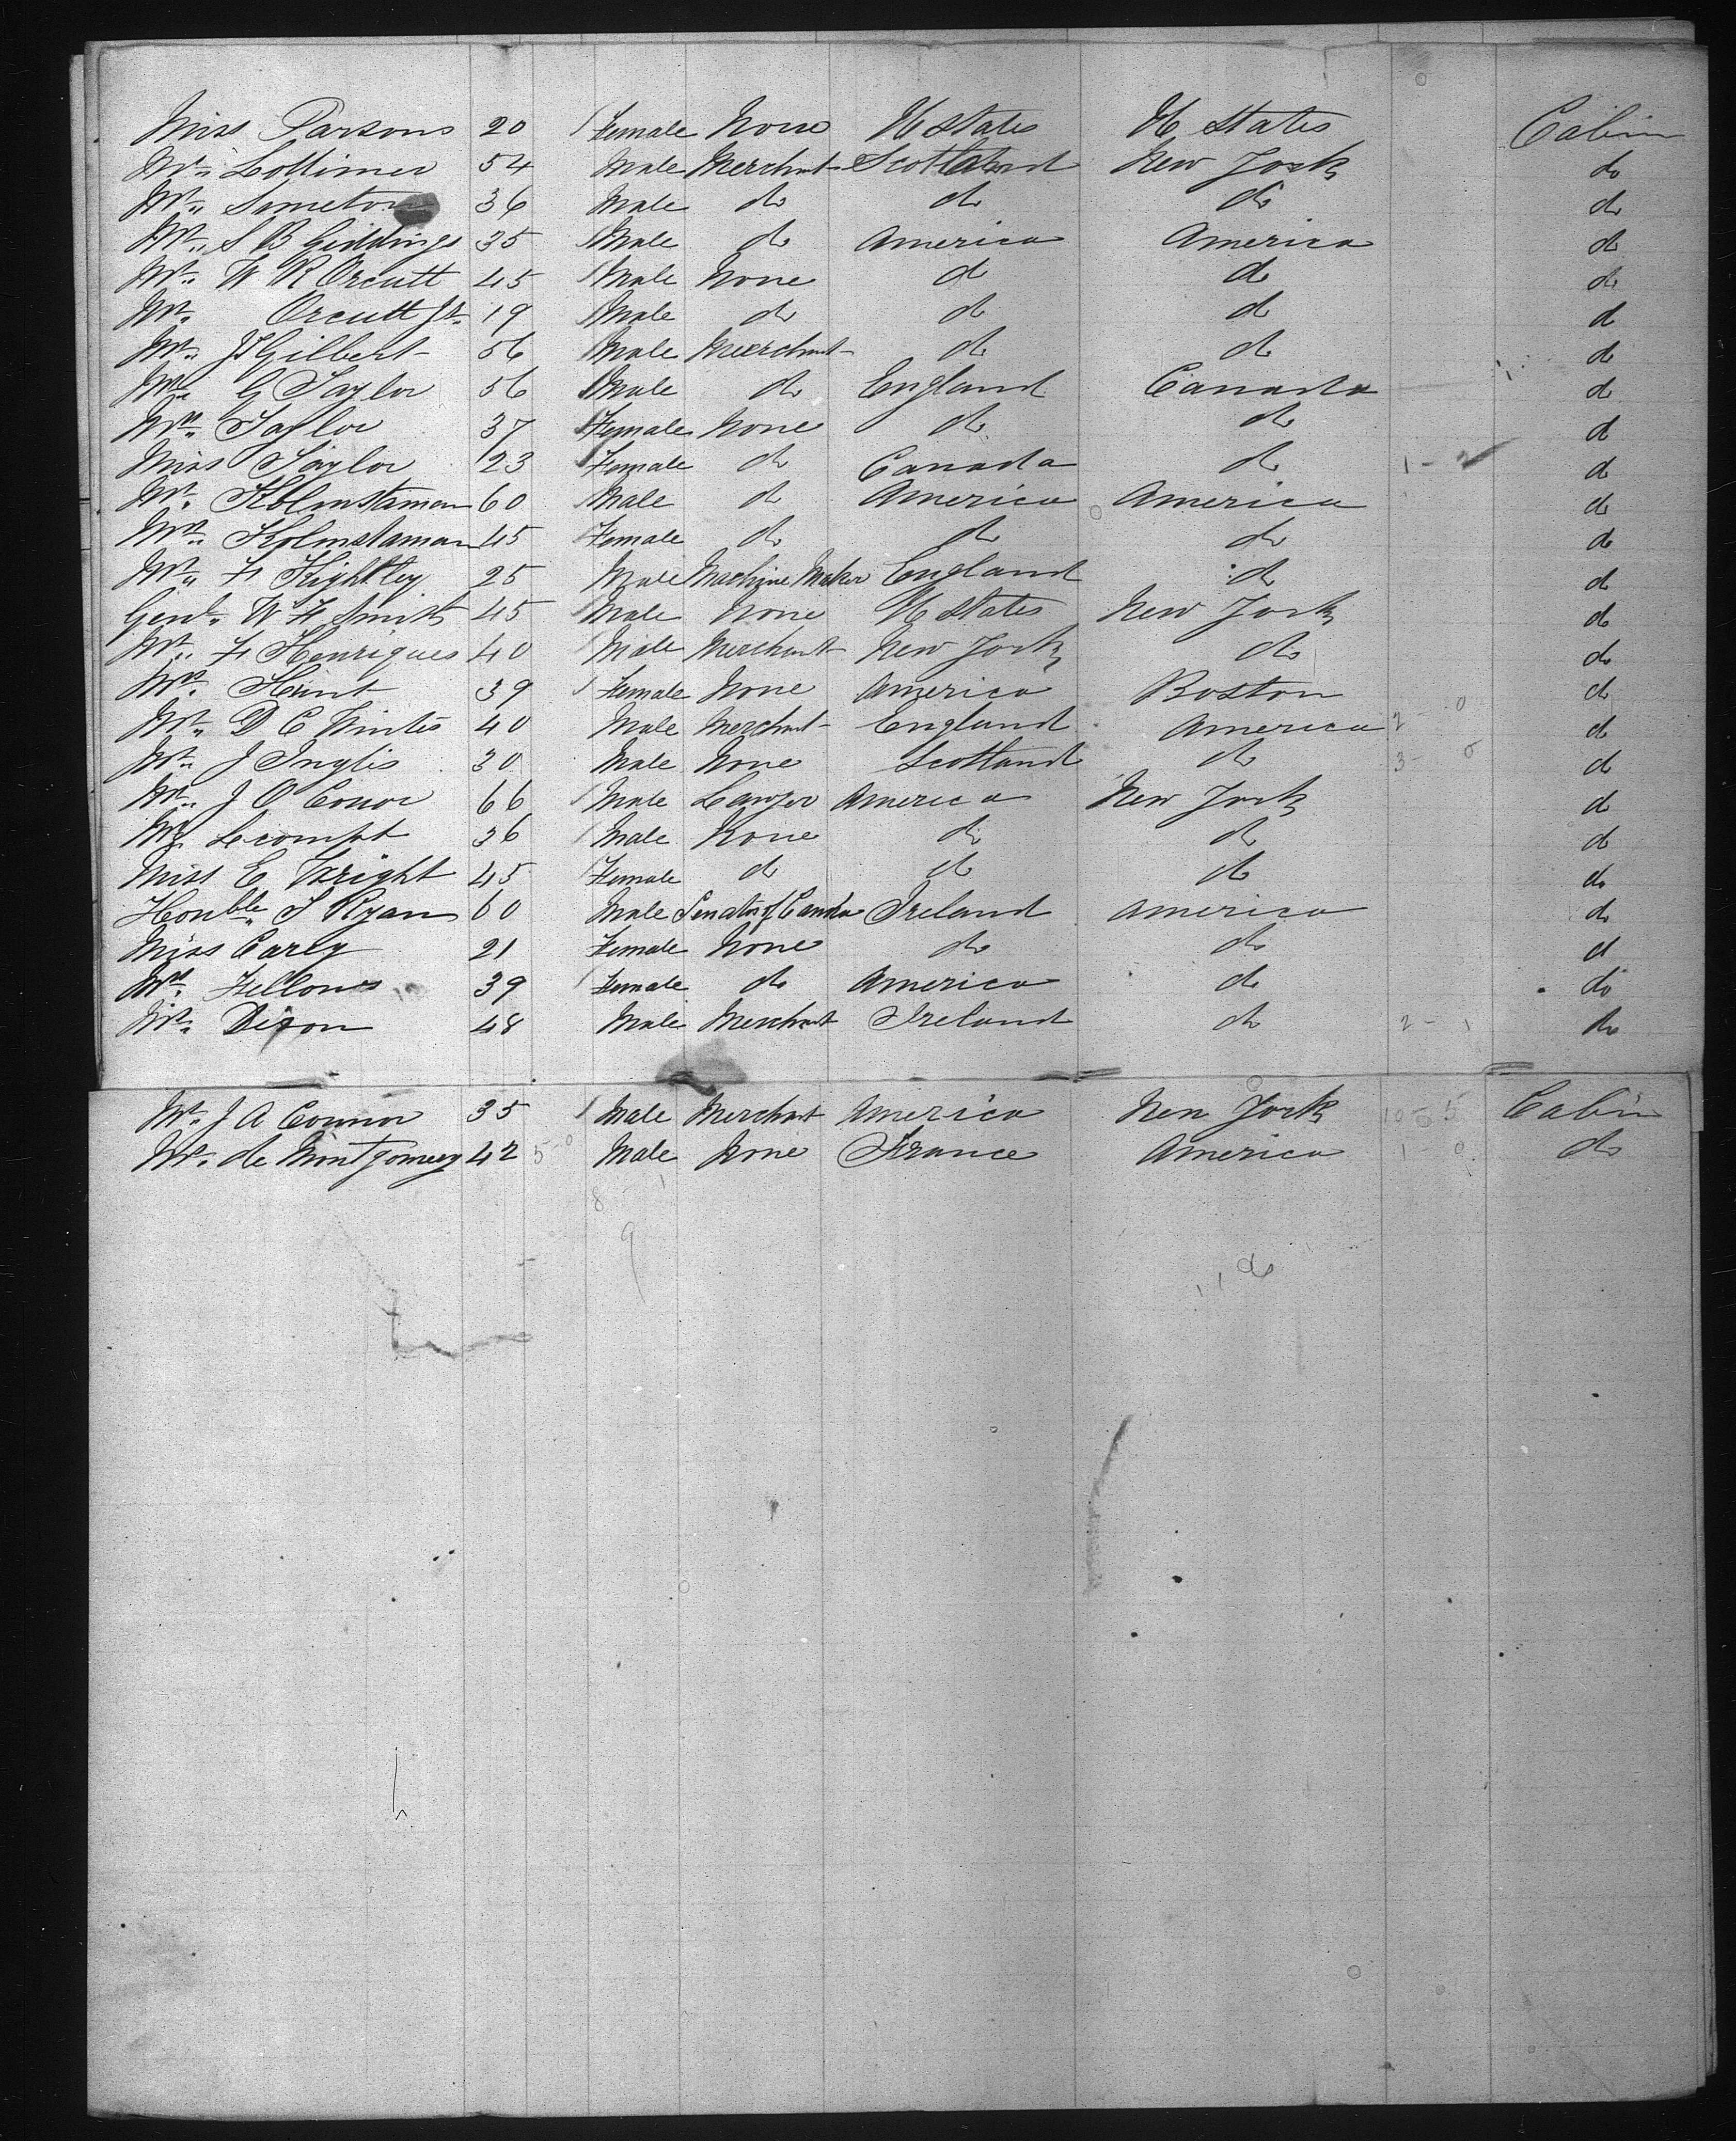 Miss Parsons 20 Female None U States U States Cabin
Mr. Lottimer 54 Male Merchant Scotland New York do
Mr. Simeton 36 Male do do do do
Mr. S B Giddings 35 Male do America America do
Mr. W R Orcutt 45 Male None do do do
Mr. Orcutt Jr. 19 Male do do do do
Mr. Gilbert 56 Male Merchant do do do
Mr. G Taylor 56 Male do England Canada do
Mrs. Taylor 37 Female None do do do
Miss Taylor 23 Female do Canada do 1 - 2 do
Mr. Holmstaman 60 Male do America America do
Mrs. Holmstaman 45 Female do do do do
Mr. F Kightley 25 Male Machine Maker England do do
Genl. W F Smith 45 Male None U States New York do
Mr. F Henriques 40 Male Merchant New York do do
Mrs. Hunt 39 Female None America Boston do
Mr. D C Winter 40 Male Merchant England America 2 - 0 do
Mr. J Inglis 30 Male None Scotland do 3 - 0 do
Mr. J O Conor 66 Male Lawyer America New York do
Mr. Lecompt 36 Male None do do do
Miss E Wright 45 Female do do do do
Honble. T Ryan 60 Male Senator of Canda Ireland America do
Miss Carey 21 Female None do do do
Mrs. Fellows 39 Female do America do do
Mr. Dixon 48 Male Merchant Ireland do 2 - 1 do
Mr. J A Connor 35 Male Merchant America New York 10 - 5 Cabin
Mr. de Montgomery 42 5 - 0 Male None France America 1 - 0 do
8 - 1
9
do